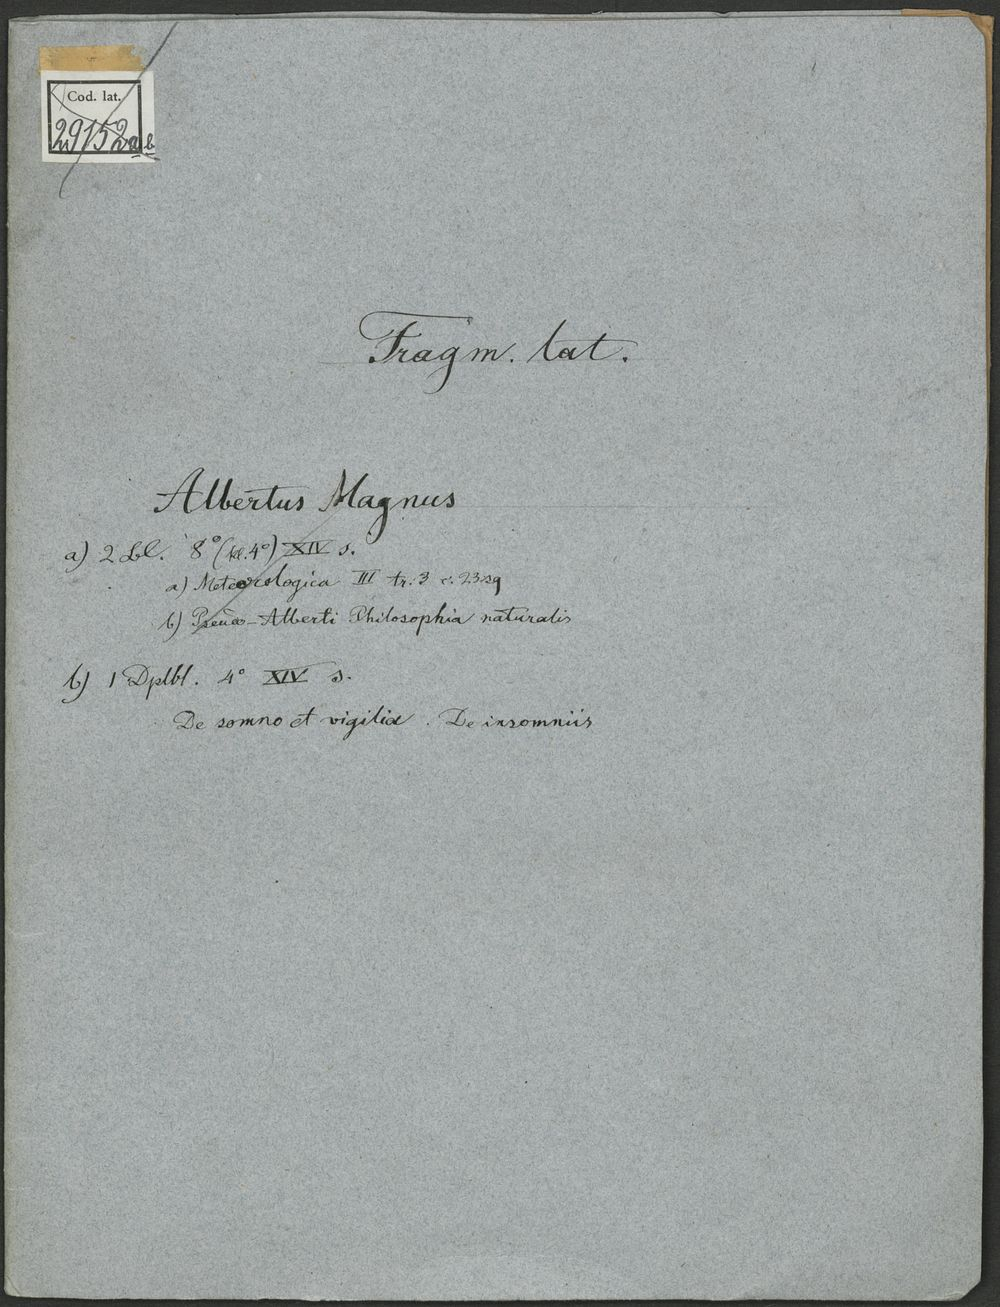 Cod. lat.
29152a b
Fragm. lat.
Albertus Magnus
a) 2 Bl. 8° (kl. 4°) XIV s.
a) Meteorologica III tr. 3 c. 23 sq
b) Pseudo-Alberti Philosophia naturalis
b) 1 Dplbl. 4° XIV s.
De somno et vigilia. De insomniis